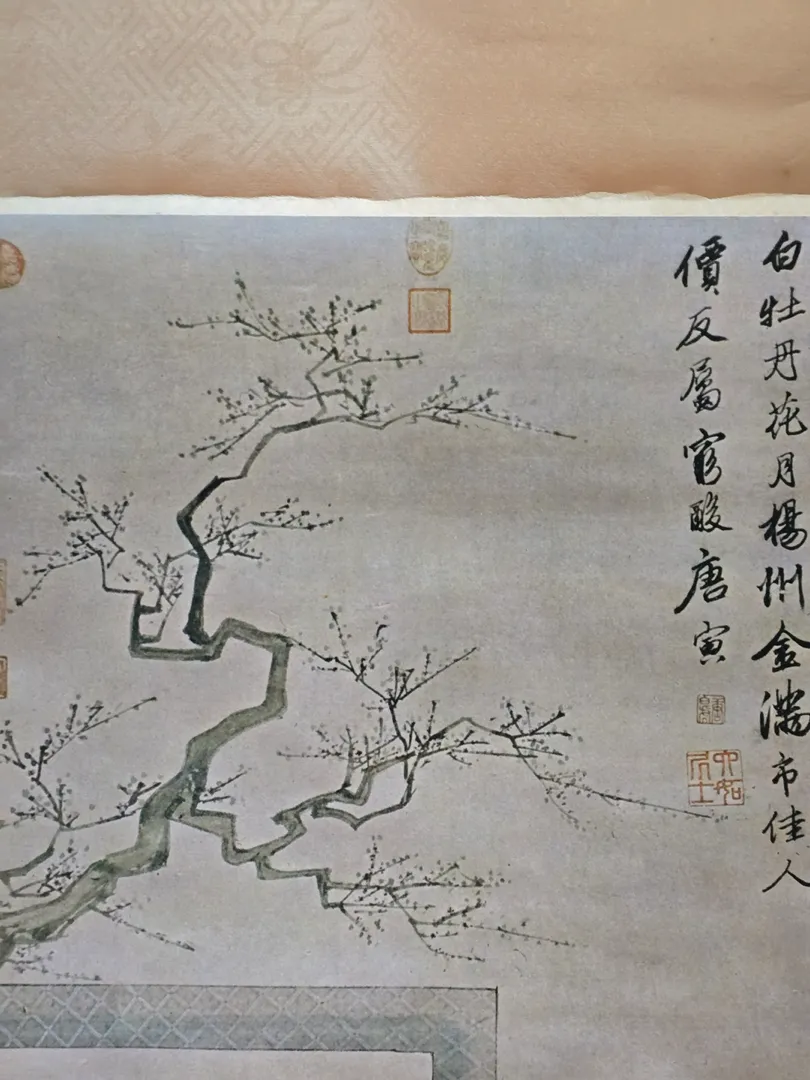 白牡丹花月楊州金滿市佳人
價反屬窮酸唐寅
六如居士